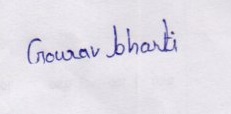 Gourav bharti